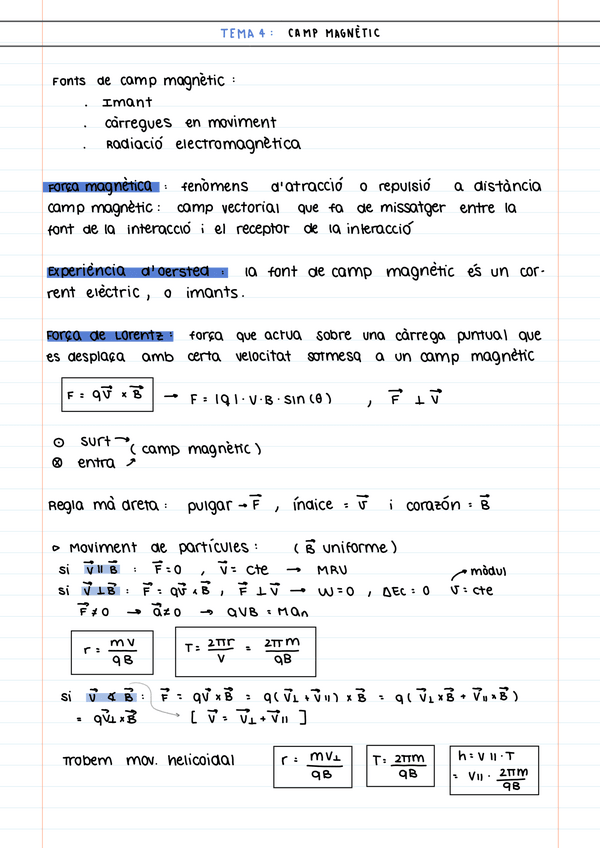 TEMA 4: CAMP MAGNÈTIC
Fonts de camp magnètic:
. Imant
. càrregues en moviment
. Radiació electromagnètica
Força magnètica: fenòmens d'atracció o repulsió a distància
camp magnètic: camp vectorial que fa de missatger entre la
font de la interacció i el receptor de la interacció
Experiència d'oersted: la font de camp magnètic és un cor-
rent elèctric, o imants.
Força de Lorentz: força que actua sobre una càrrega puntual que
es desplaça amb certa velocitat sotmesa a un camp magnètic
F = qv⃗ × B⃗ → F = |q|·v·B·sin(θ) , F⃗ ⊥ v⃗
⊙ surt → (camp magnètic)
⊗ entra ↗
Regla mà dreta: pulgar → F⃗, índice = v⃗ i corazón = B⃗
▹ Moviment de partícules: (B⃗ uniforme)
si v⃗ || B⃗ : F⃗ = 0 , v⃗ = cte → MRU
si v⃗ ⊥ B⃗ : F⃗ = qv⃗ × B⃗, F⃗ ⊥ v⃗ → W = 0, ΔEc = 0 v⃗ = cte ↗ mòdul
F⃗ ≠ 0 → a⃗ ≠ 0 → qvB = m an
r = mv/qB T = 2πr/v = 2πm/qB
si v⃗ ∢ B⃗ : F⃗ = qv⃗ × B⃗ = q(v⃗⊥ + v⃗||) × B⃗ = q(v⃗⊥ × B⃗ + v⃗|| × B⃗)
= qv⃗⊥ × B⃗ [v⃗ = v⃗⊥ + v⃗||]
Trobem mov. helicoidal r = mv⊥/qB T = 2πm/qB h = v||·T
= v||· 2πm/qB